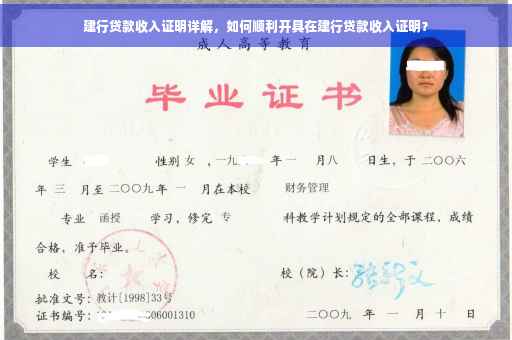 建行贷款收入证明详解，如何顺利开具在建行贷款收入证明？
成人高等教育
毕业证书
学生 性别 女 ，一九 年 一 月 八 日生，于 二〇〇六
年 三 月至 二〇〇九 年 一 月在本校 财务管理
专业 函授 学习，修完 专 科教学计划规定的全部课程，成绩
合格，准予毕业。
校 名： 校（院）长：
批准文号：教计[1998]33号
证书编号： 06001310 二〇〇九 年 一 月 十 日